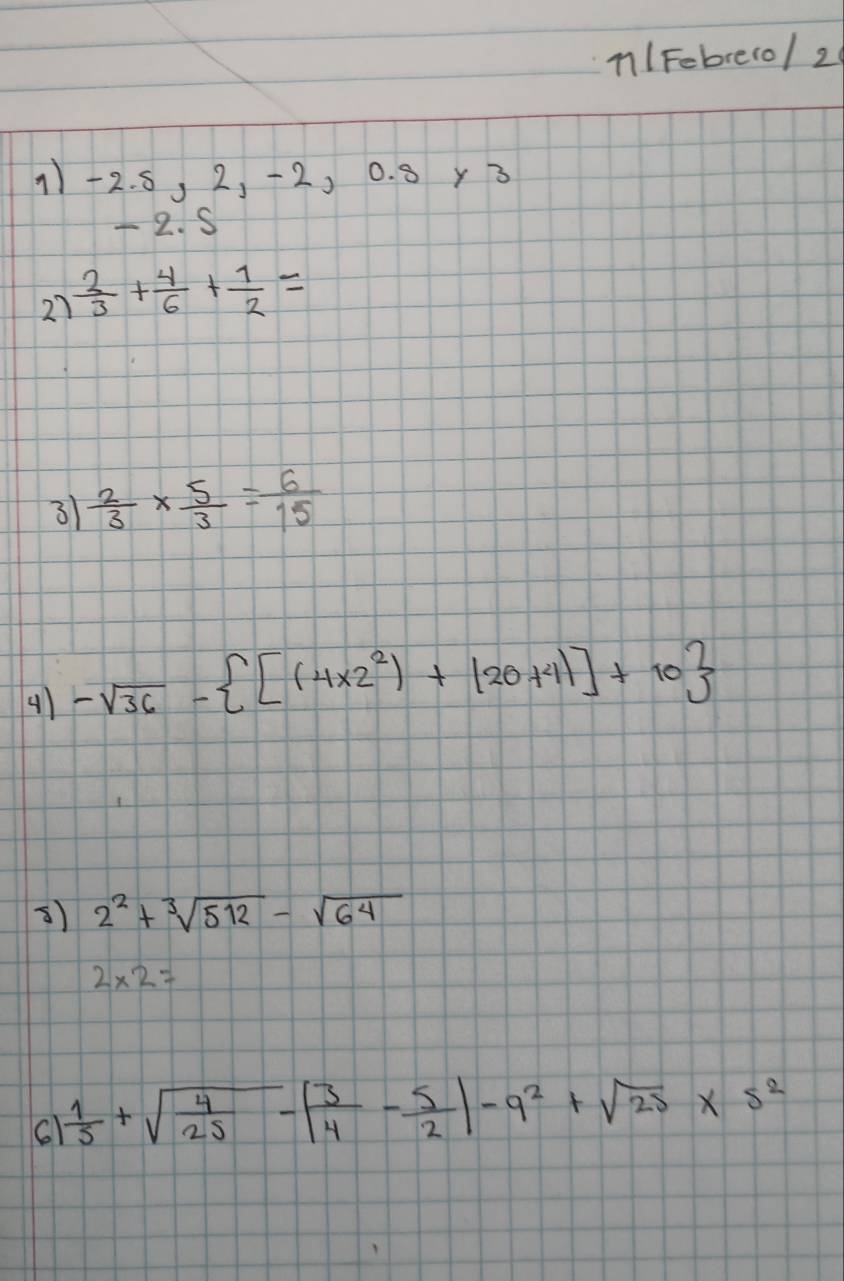 11/Febrero/2
1) -2.5, 2, -2, 0.8 y 3
-2.5
2) 2/3 + 4/6 + 1/2 =
3) 2/3 × 5/3 = 6/15
4) -√36 - {[(4×2²) + (20+4)] + 10}
5) 2² + ³√512 - √64
2×2=
6) 1/5 + √(4/25) - (3/4 - 5/2) - 9² + √25 × 5²